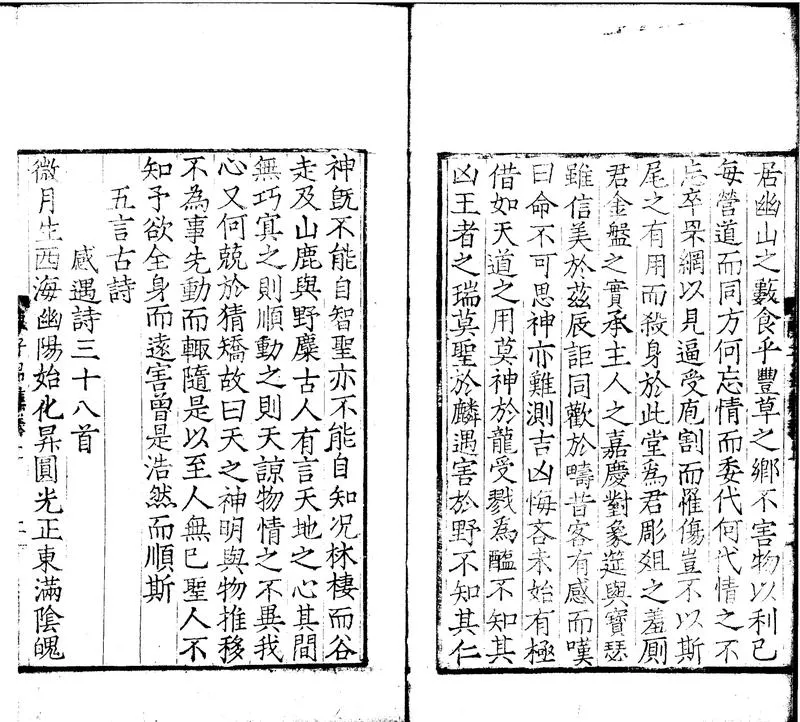 居幽山之藪食乎豐草之鄉不害物以利己
每營道而同方何忘情而委代何代情之不
忘卒罘網以見逼受庖割而罹傷豈不以斯
尾之有用而殺身於此堂為君彫俎之羞厠
君金盤之實承主人之嘉慶對象筵與寶瑟
雖信美於茲辰詎同歡於疇昔客有感而嘆
曰命不可思神亦難測吉凶悔吝未始有極
借如天道之用莫神於龍受戮為醢不知其
凶王者之瑞莫聖於麟遇害於野不知其仁
神旣不能自智聖亦不能自知况林棲而谷
走及山鹿與野麋古人有言天地之心其間
無巧㝠之則順動之則夭諒物情之不異我
心又何兢於猜矯故曰天之神明與物推移
不為事先動而輒隨是以至人無己聖人不
知予欲全身而遠害曾是浩然而順斯
五言古詩
感遇詩三十八首
微月生西海幽陽始化昇圓光正東滿陰魄